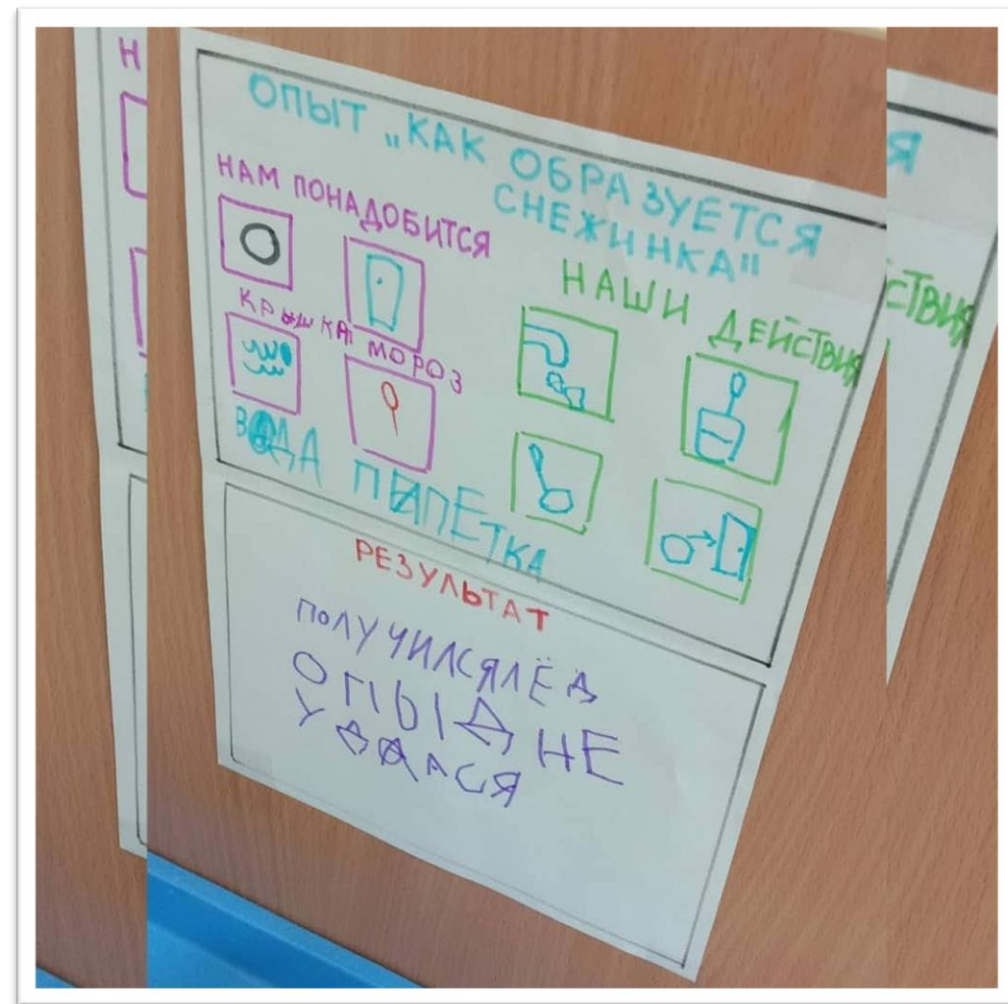 Н
ОПЫТ „КАК ОБРАЗУЕТСЯ
СНЕЖИНКА"
НАМ ПОНАДОБИТСЯ
КРЫШКА
МОРОЗ
ВОДА ПИПЕТКА
НАШИ ДЕЙСТВИЯ
РЕЗУЛЬТАТ
ПОЛУЧИЛСЯЛЁД
ОПЫД НЕ
УДАЛСЯ
Я
СТВИЯ